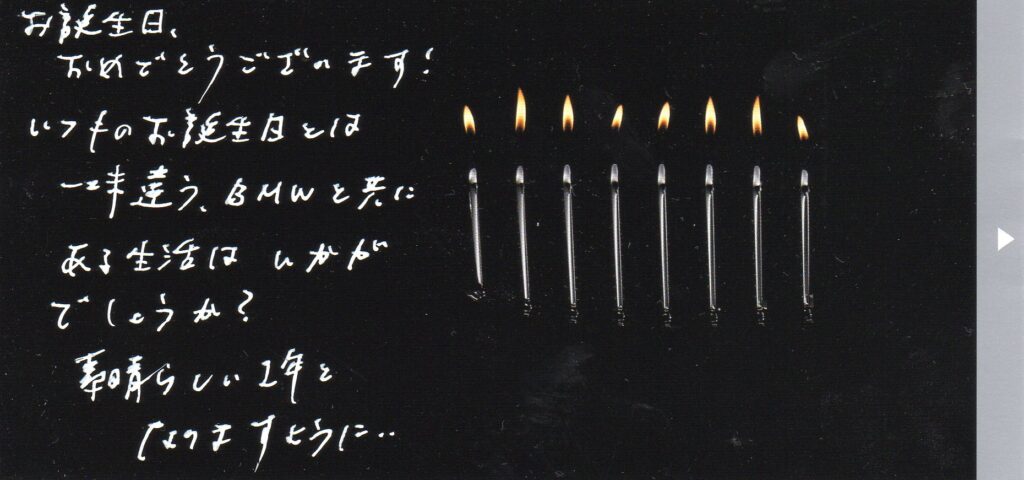 お誕生日、
おめでとうございます!
いつものお誕生日とは
一味違う、BMWと共に
ある生活は いかが
でしょうか?
素晴らしい1年と
なりますように‥